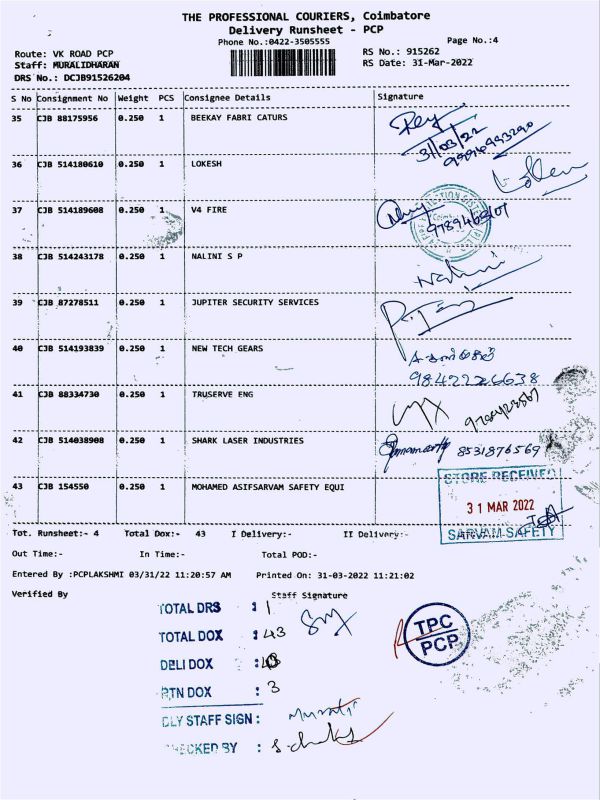 THE PROFESSIONAL COURIERS, Coimbatore
Delivery Runsheet - PCP
Phone No.:0422-3505555 Page No.:4
Route: VK ROAD PCP RS No.: 915262
Staff: MURALIDHARAN RS Date: 31-Mar-2022
DRS No.: DCJB91526204
S No Consignment No Weight PCS Consignee Details Signature
35 CJB 88175956 0.250 1 BEEKAY FABRI CATURS
31/03/22
36 CJB 514180610 0.250 1 LOKESH
37 CJB 514189608 0.250 1 V4 FIRE
38 CJB 514243178 0.250 1 NALINI S P
39 CJB 87278511 0.250 1 JUPITER SECURITY SERVICES
40 CJB 514193839 0.250 1 NEW TECH GEARS
9842226638
41 CJB 88334730 0.250 1 TRUSERVE ENG
42 CJB 514038908 0.250 1 SHARK LASER INDUSTRIES 8531876569
43 CJB 154550 0.250 1 MOHAMED ASIFSARVAM SAFETY EQUI
STORE RECEIVED
31 MAR 2022
SARVAM SAFETY
Tot. Runsheet:- 4 Total Dox:- 43 I Delivery:- II Delivery:-
Out Time:- In Time:- Total POD:-
Entered By :PCPLAKSHMI 03/31/22 11:20:57 AM Printed On: 31-03-2022 11:21:02
Verified By Staff Signature
TOTAL DRS : 1
TOTAL DOX : 43
DELI DOX :
RTN DOX : 3
DLY STAFF SIGN :
CHECKED BY :
TPC
PCP